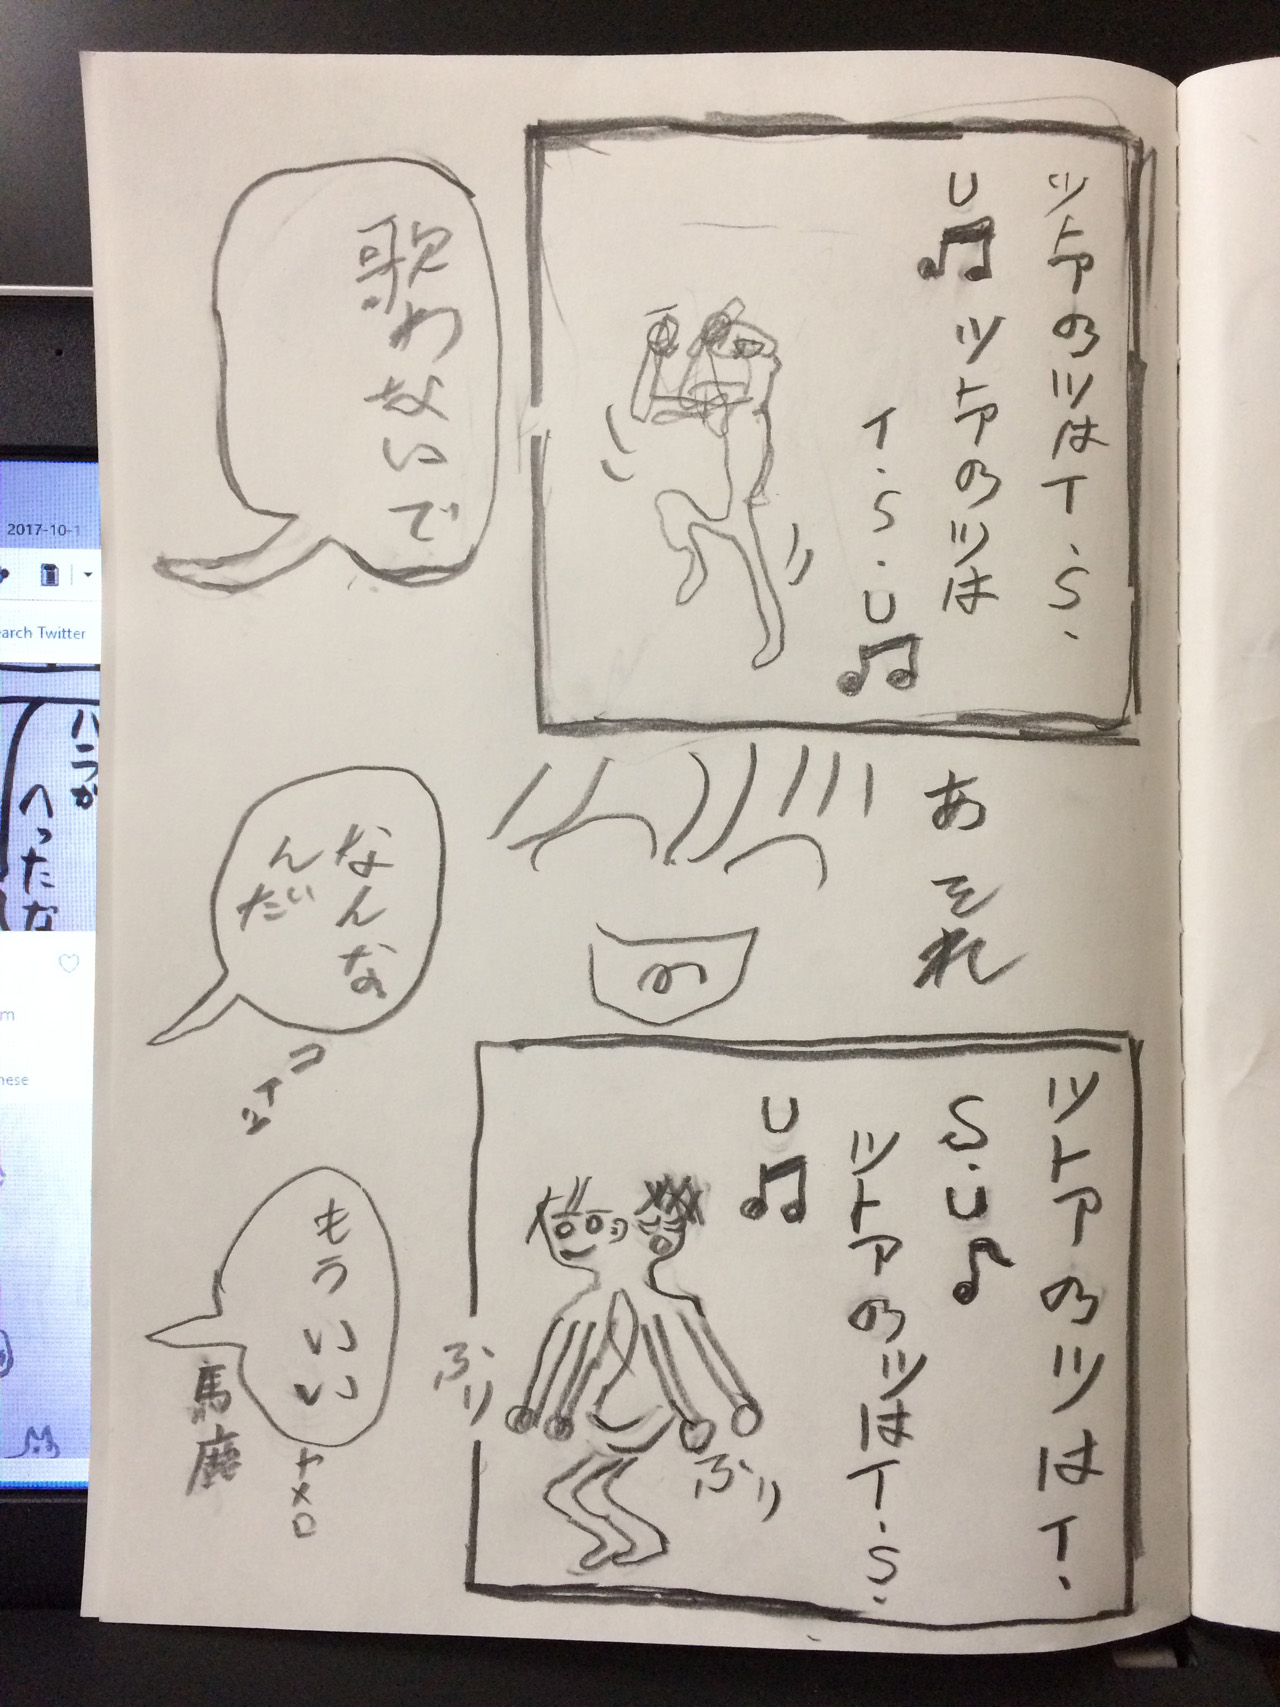 ツトアのツはT.S.
U♫ ツトアのツは
T.S.U♫
歌わないで
あそれ
なんな
んだい
コイツ
ツトアのツはT.
S.U♪
ツトアのツはT.S.
U♫
ぷり
ぷり
もういい
ヤメロ
馬鹿
2017-10-1
earch Twitter
ハラが
へったな
m
nese